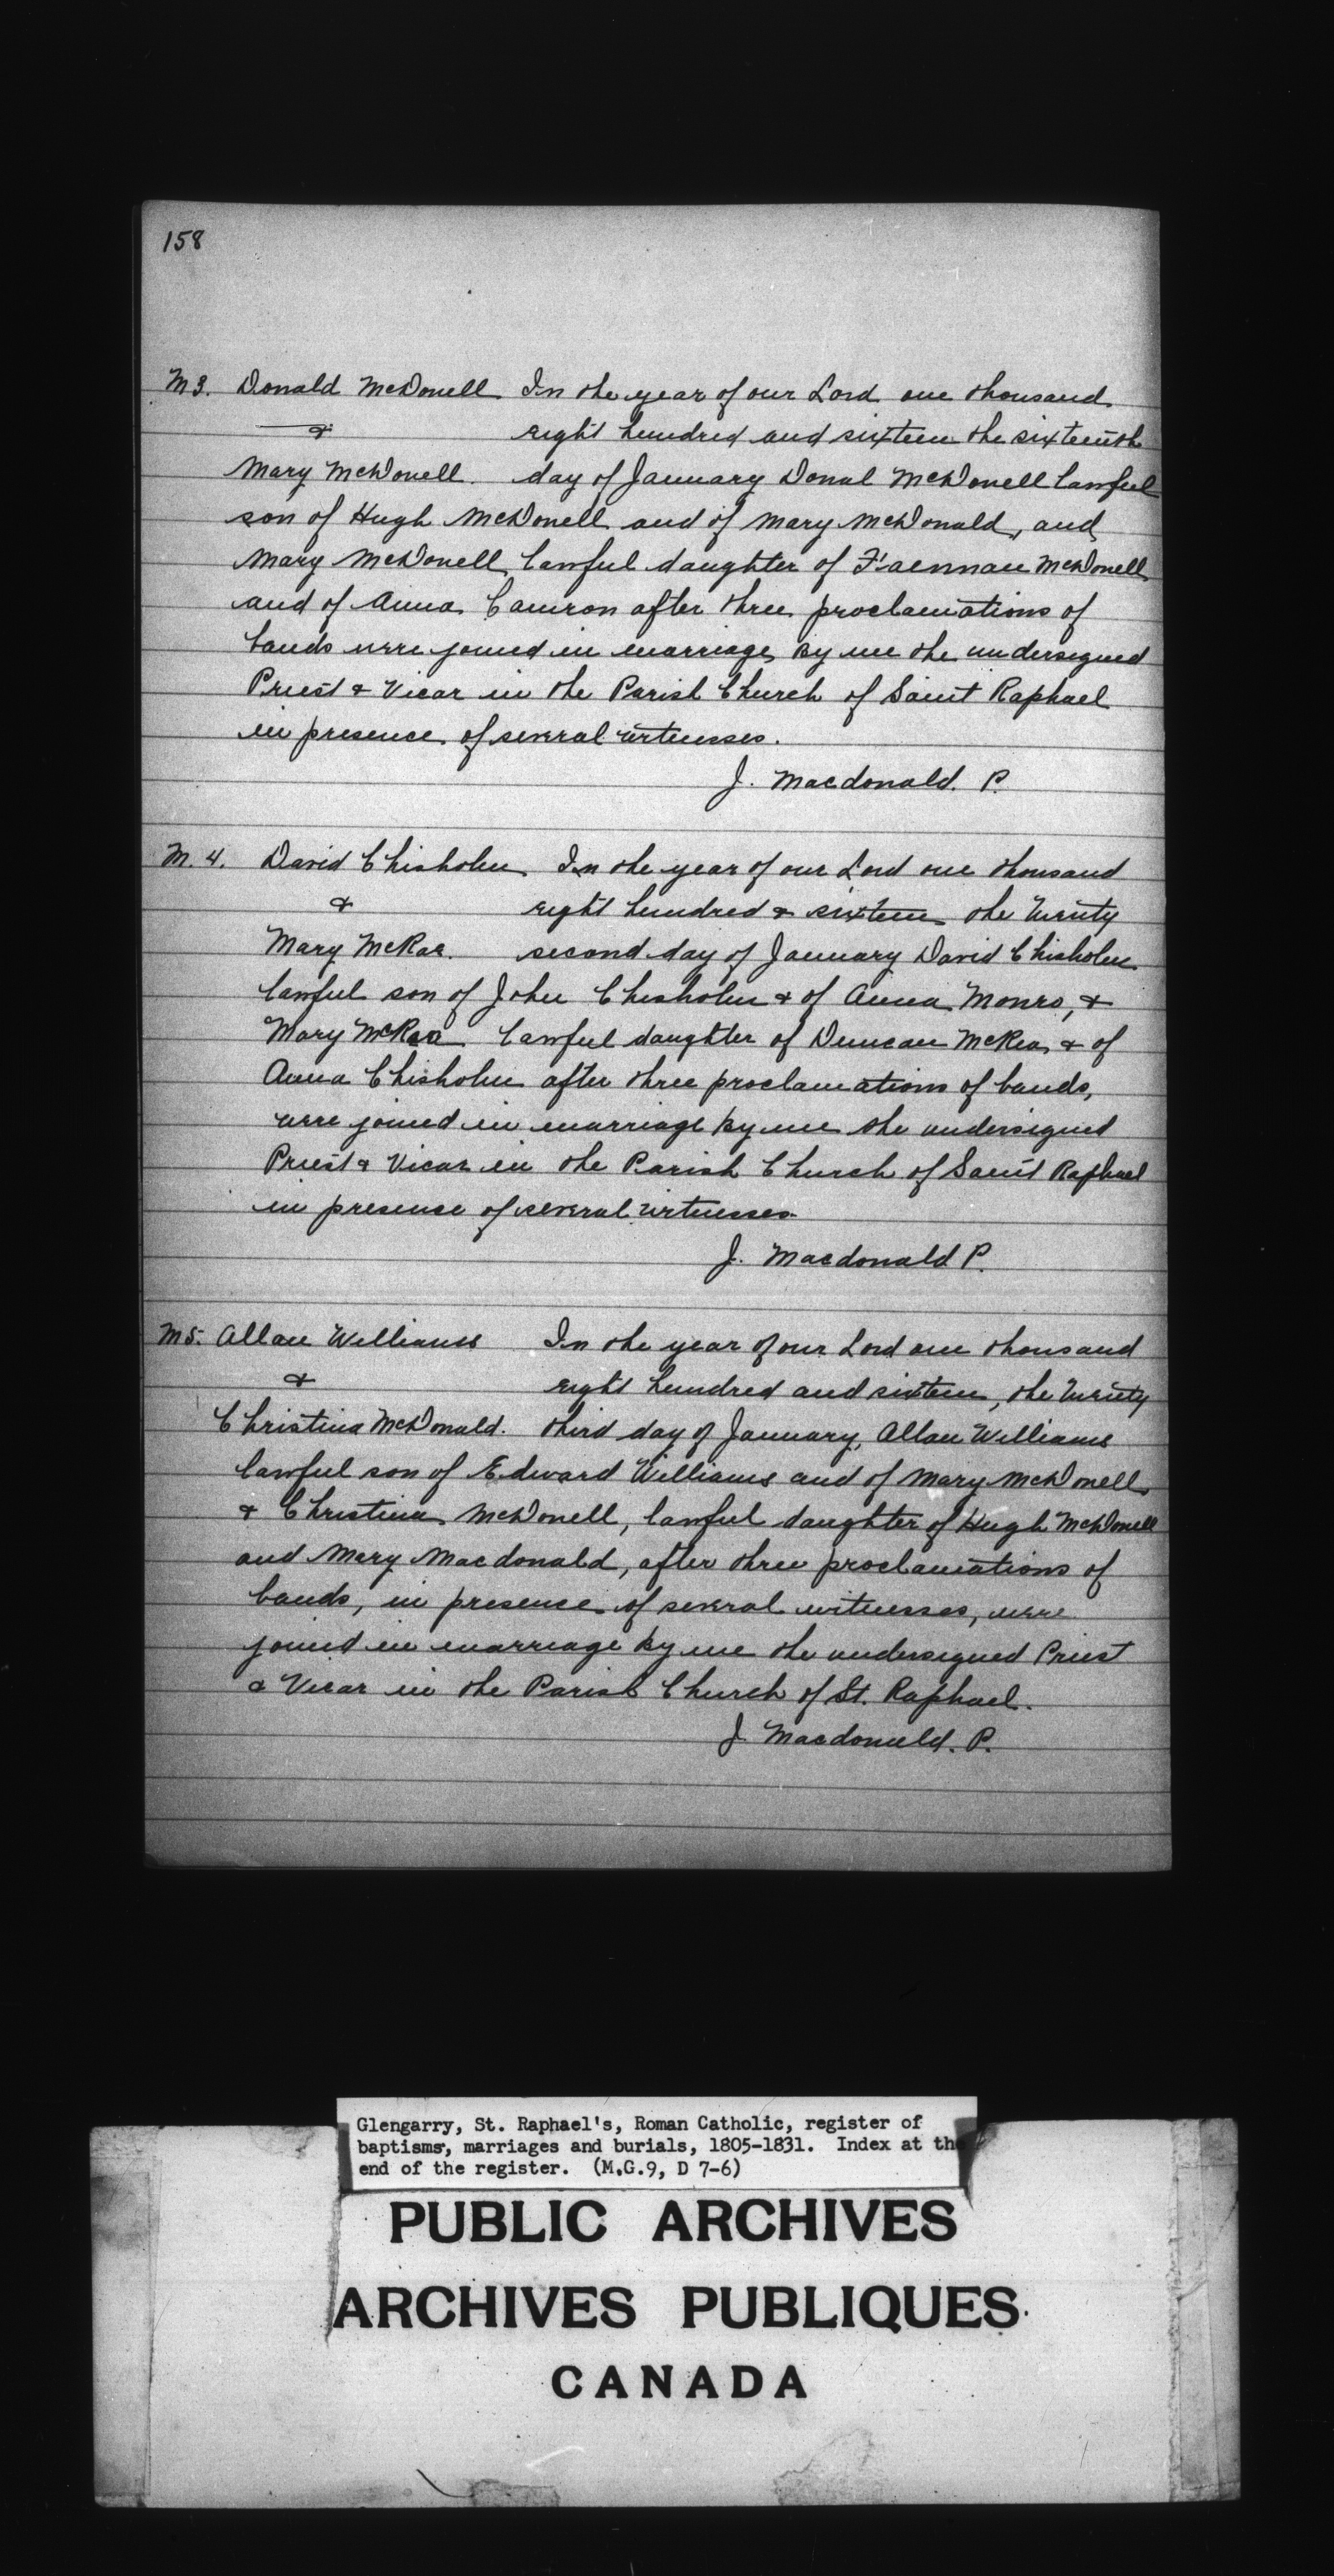 158
M3. Donald McDonell In the year of our Lord one thousand
& eight hundred and sixteen the sixteenth
Mary McDonell. day of January Donal McDonell lawful
son of Hugh McDonell and of Mary McDonald, and
Mary McDonell lawful daughter of McDonell
and of Anna Camron after three proclamations of
bands were joined in marriage by me the undersigned
Priest & Vicar in the Parish Church of Saint Raphael
in presence of several witnesses.
J. Macdonald. P.
M. 4. David Chisholm In the year of our Lord one thousand
& eight hundred & sixteen the twenty
Mary McRae. second day of January David Chisholm
lawful son of John Chisholm & of Anna Monro, &
Mary McRea lawful daughter of Duncan McRea & of
Anna Chisholm after three proclamations of bands,
were joined in marriage by me the undersigned
Priest & Vicar in the Parish Church of Saint Raphael
in presence of several witnesses.
J. Macdonald P.
M5. Allan Williams In the year of our Lord one thousand
& eight hundred and sixteen, the twenty
Christina McDonald. third day of January, Allan Williams
lawful son of Edward Williams and of Mary McDonell
& Christina McDonell, lawful daughter of Hugh McDonell
and Mary Macdonald, after three proclamations of
bands, in presence of several witnesses, were
joined in marriage by me the undersigned Priest
& Vicar in the Parish Church of St. Raphael.
J Macdonald. P.
Glengarry, St. Raphael's, Roman Catholic, register of
baptisms, marriages and burials, 1805-1831. Index at the
end of the register. (M.G.9, D 7-6)
PUBLIC ARCHIVES
ARCHIVES PUBLIQUES
CANADA